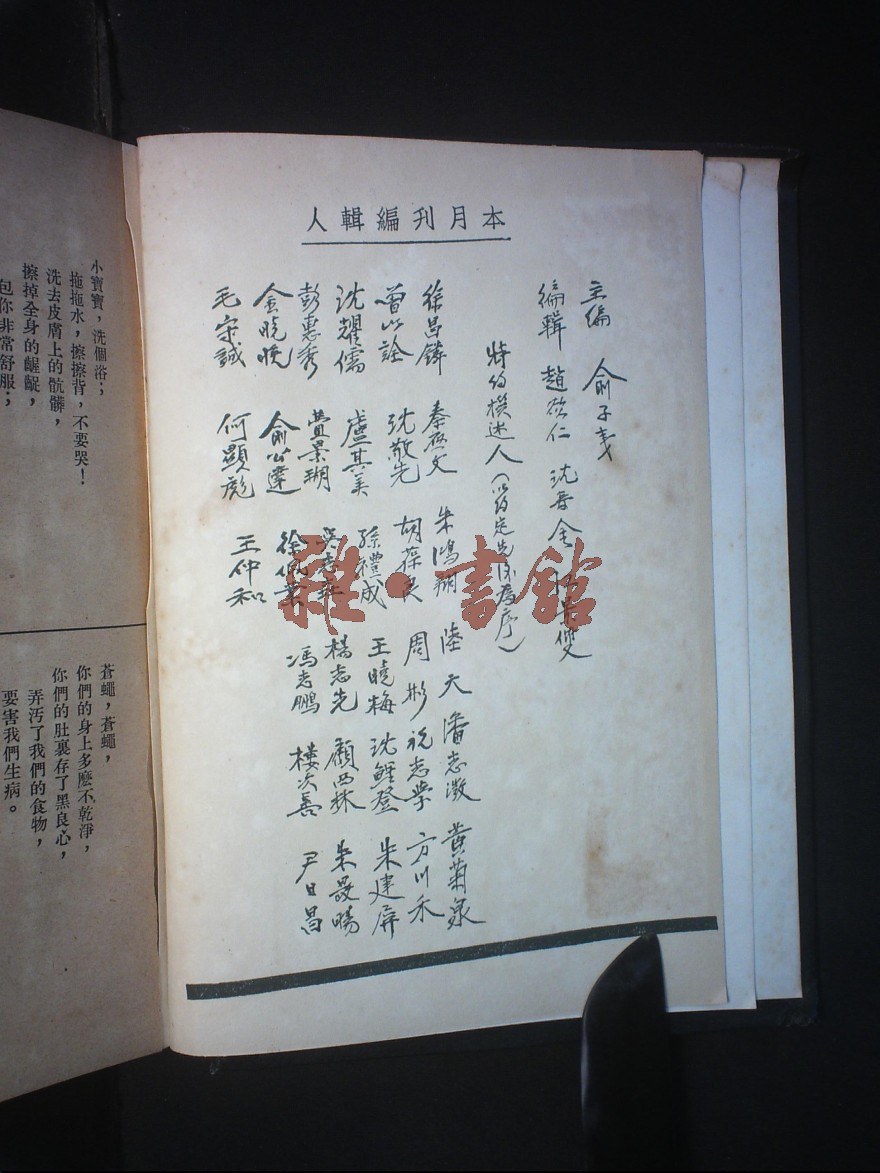 本月刊編輯人
主編 俞子夷
編輯 趙欲仁 沈百金
特約撰述人(以約定先後為序)
徐昌鏞 秦 文 朱鴻翔 陸天 潘志澂 黃菊泉
曾以詮 沈敬先 胡葆良 周彬 祝志學 方川禾
沈耀儒 盧其美 孫禮成 王曉梅 沈鯉登 朱建屏
彭惠秀 景瑚 吳志 楊志先 顧西林 朱晸暘
金曉晚 俞公達 徐 業 馮志鵬 樓次善 尹日昌
毛宗誠 何顯彪 王仲和
雜·書館
小寶寶,洗個浴;
拖拖水,擦擦背,不要哭!
洗去皮膚上的骯髒,
擦掉全身的齷齪,
包你非常舒服;
蒼蠅,蒼蠅,
你們的身上多麼不乾淨,
你們的肚裏存了黑良心,
弄污了我們的食物,
要害我們生病。